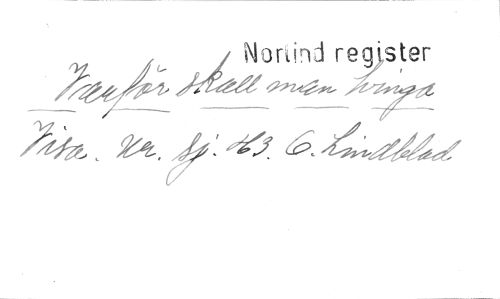 Norlind register
Varför skall man tvinga
Visa. Ur. Sj. H3. O. Lindblad